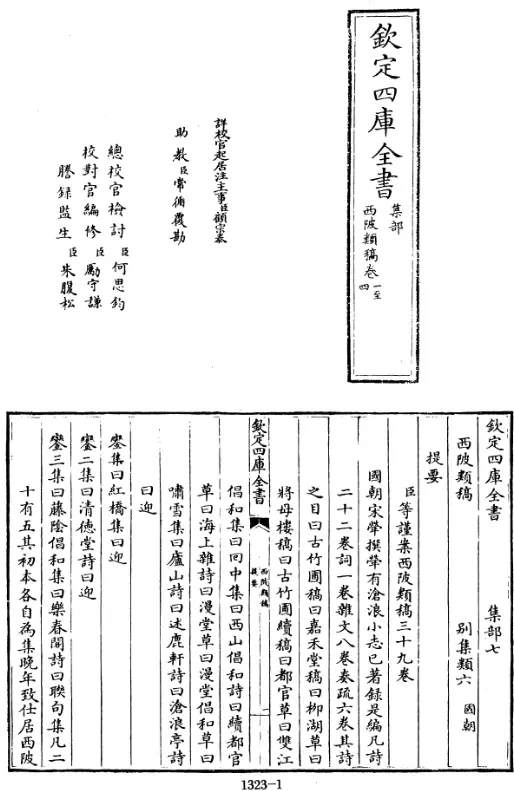 欽定四庫全書
集部
西陂類稿卷一至四
詳校官起居注主事臣顧宗泰
助教臣常循覆勘
總校官檢討臣何思鈞
校對官編修臣勵守謙
謄錄監生臣朱腹松
欽定四庫全書　集部七
西陂類稿　别集類六 國朝
提要
臣等謹案西陂類稿三十九卷
國朝宋犖撰犖有滄浪小志已著録是編凡詩
二十二卷詞一卷雜文八卷奏疏六卷其詩
之目曰古竹圃稿曰嘉禾堂稿曰柳湖草曰
將母樓稿曰古竹圃續稿曰都官草曰雙江
欽定四庫全書
西陂類稿
提要
一
倡和集曰回中集曰西山倡和詩曰續都官
草曰海上雜詩曰漫堂草曰漫堂倡和草曰
嘯雪集曰廬山詩曰述鹿軒詩曰滄浪亭詩
曰迎
鑾集曰紅橋集曰迎
鑾二集曰清徳堂詩曰迎
鑾三集曰藤陰倡和集曰樂春閣詩曰聨句集凡二
十有五其初本各自為集晚年致仕居西陂
1323-1